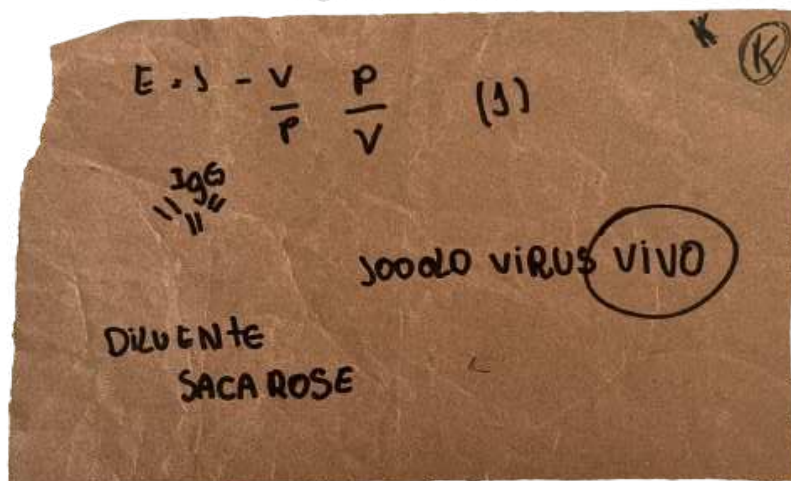 K (K)
E = 1 - V/P P/V (1)
IgG
VIRUS VIVO
DILUENTE
SACAROSE